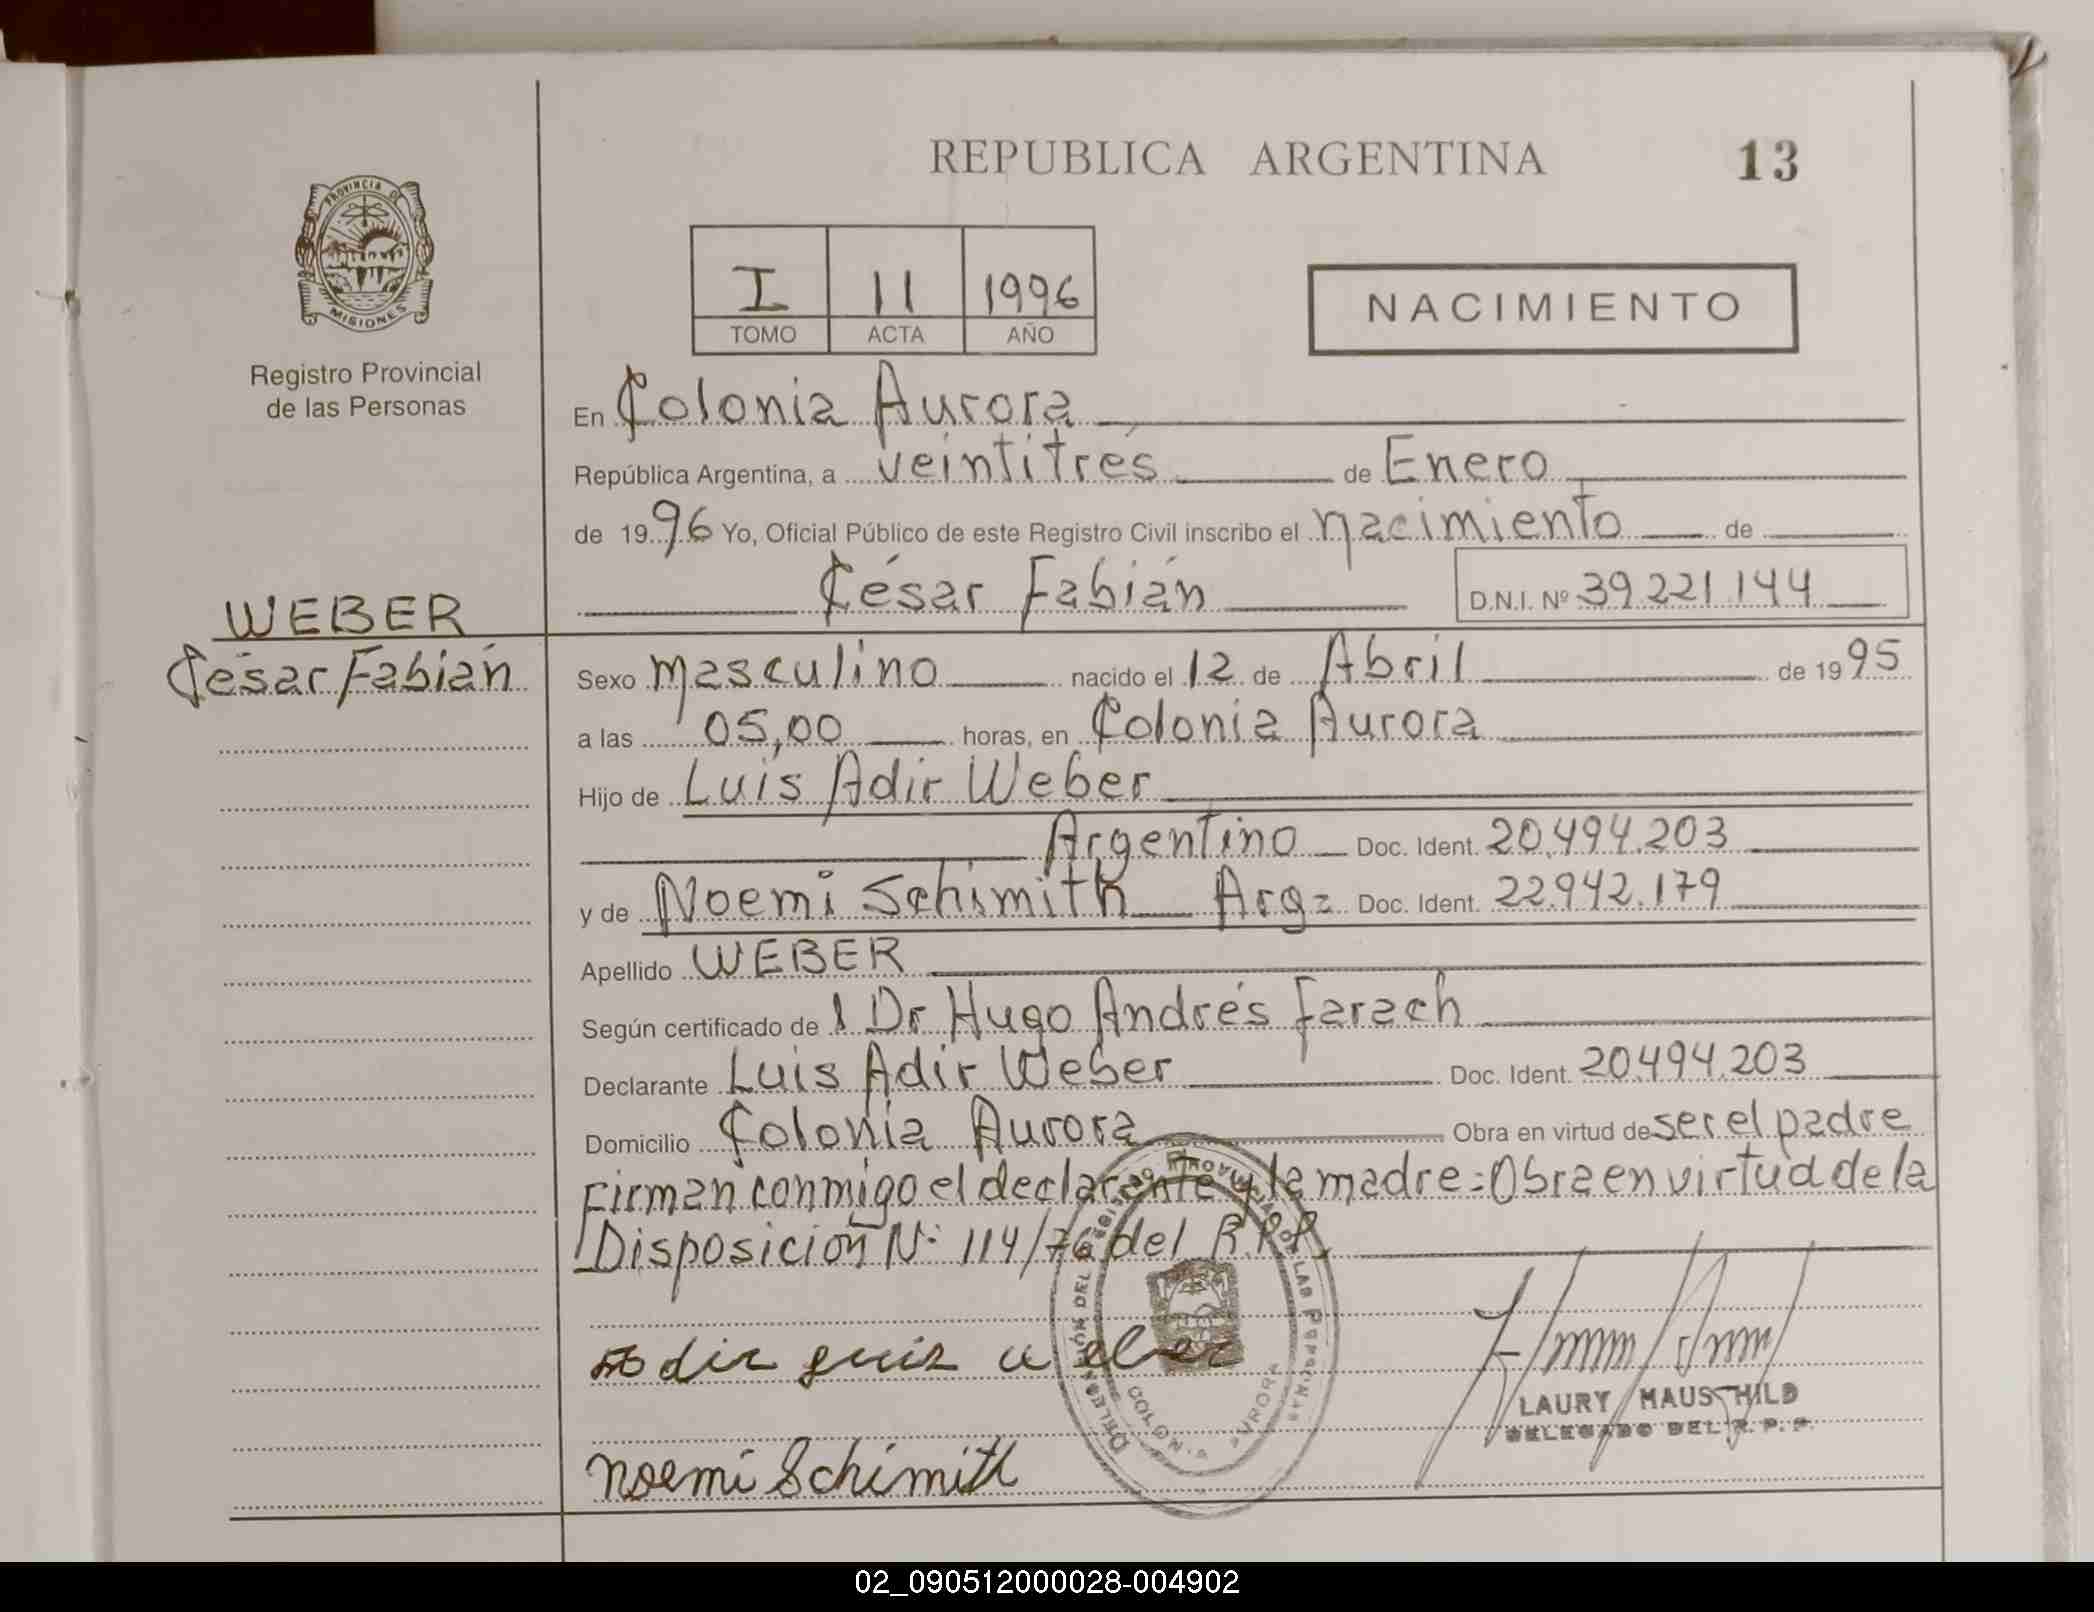 REPUBLICA ARGENTINA
13
PROVINCIA DE
MISIONES
Registro Provincial
de las Personas
I 11 1996
TOMO ACTA AÑO
NACIMIENTO
En Colonia Aurora
República Argentina, a veintitrés de Enero
de 1996 Yo, Oficial Público de este Registro Civil inscribo el nacimiento de
César Fabián D.N.I. Nº 39.221.144
WEBER
César Fabián
Sexo masculino nacido el 12 de Abril de 1995
a las 05,00 horas, en Colonia Aurora
Hijo de Luis Adir Weber
Argentino Doc. Ident. 20.494.203
y de Noemi Schimith Arg= Doc. Ident. 22.942.179
Apellido WEBER
Según certificado de l Dr Hugo Andrés Farach
Declarante Luis Adir Weber Doc. Ident. 20.494.203
Domicilio Colonia Aurora Obra en virtud de ser el padre
Firman conmigo el declarante y la madre=Obra en virtud de la
Disposición Nº 114/76 del R.P.P.
DELEGACIÓN DEL REGISTRO PROVINCIAL DE LAS PERSONAS
COLONIA AURORA
adir luis weber
LAURY MAUSCHILD
DELEGADO DEL R.P.P.
Noemi Schimith
02_090512000028-004902